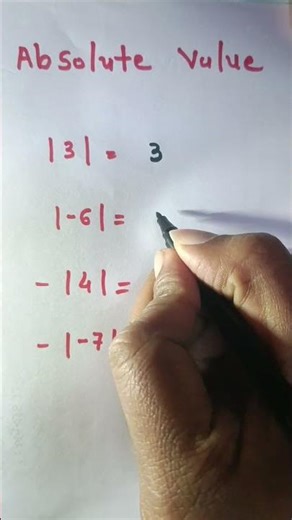 Absolute Value
|3| = 3
|-6| =
- |4| =
- |-7|